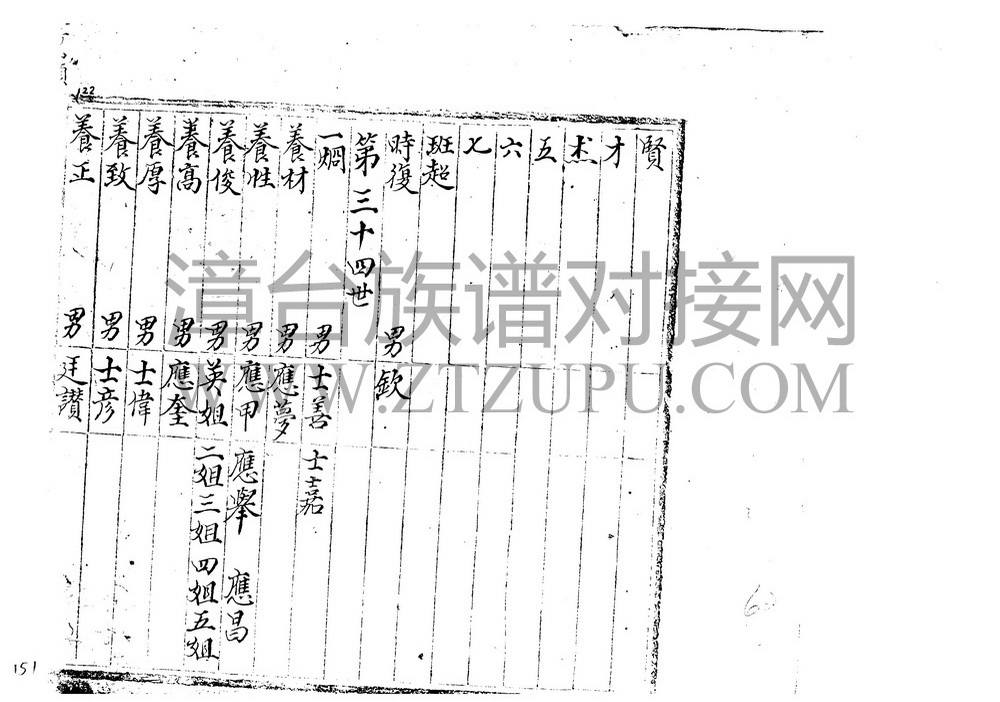 賢
才
杰
五
六
七
班超
時復 男 欽
第三十四世
一烱 男 士善 士嘉
養材 男 應夢
養性 男 應甲 應舉 應昌
養俊 男 英姐 二姐 三姐 四姐 五姐
養高 男 應奎
養厚 男 士偉
養致 男 士彦
養正 男 廷讃
122
151
漳台族谱对接网
WWW.ZTZUPU.COM